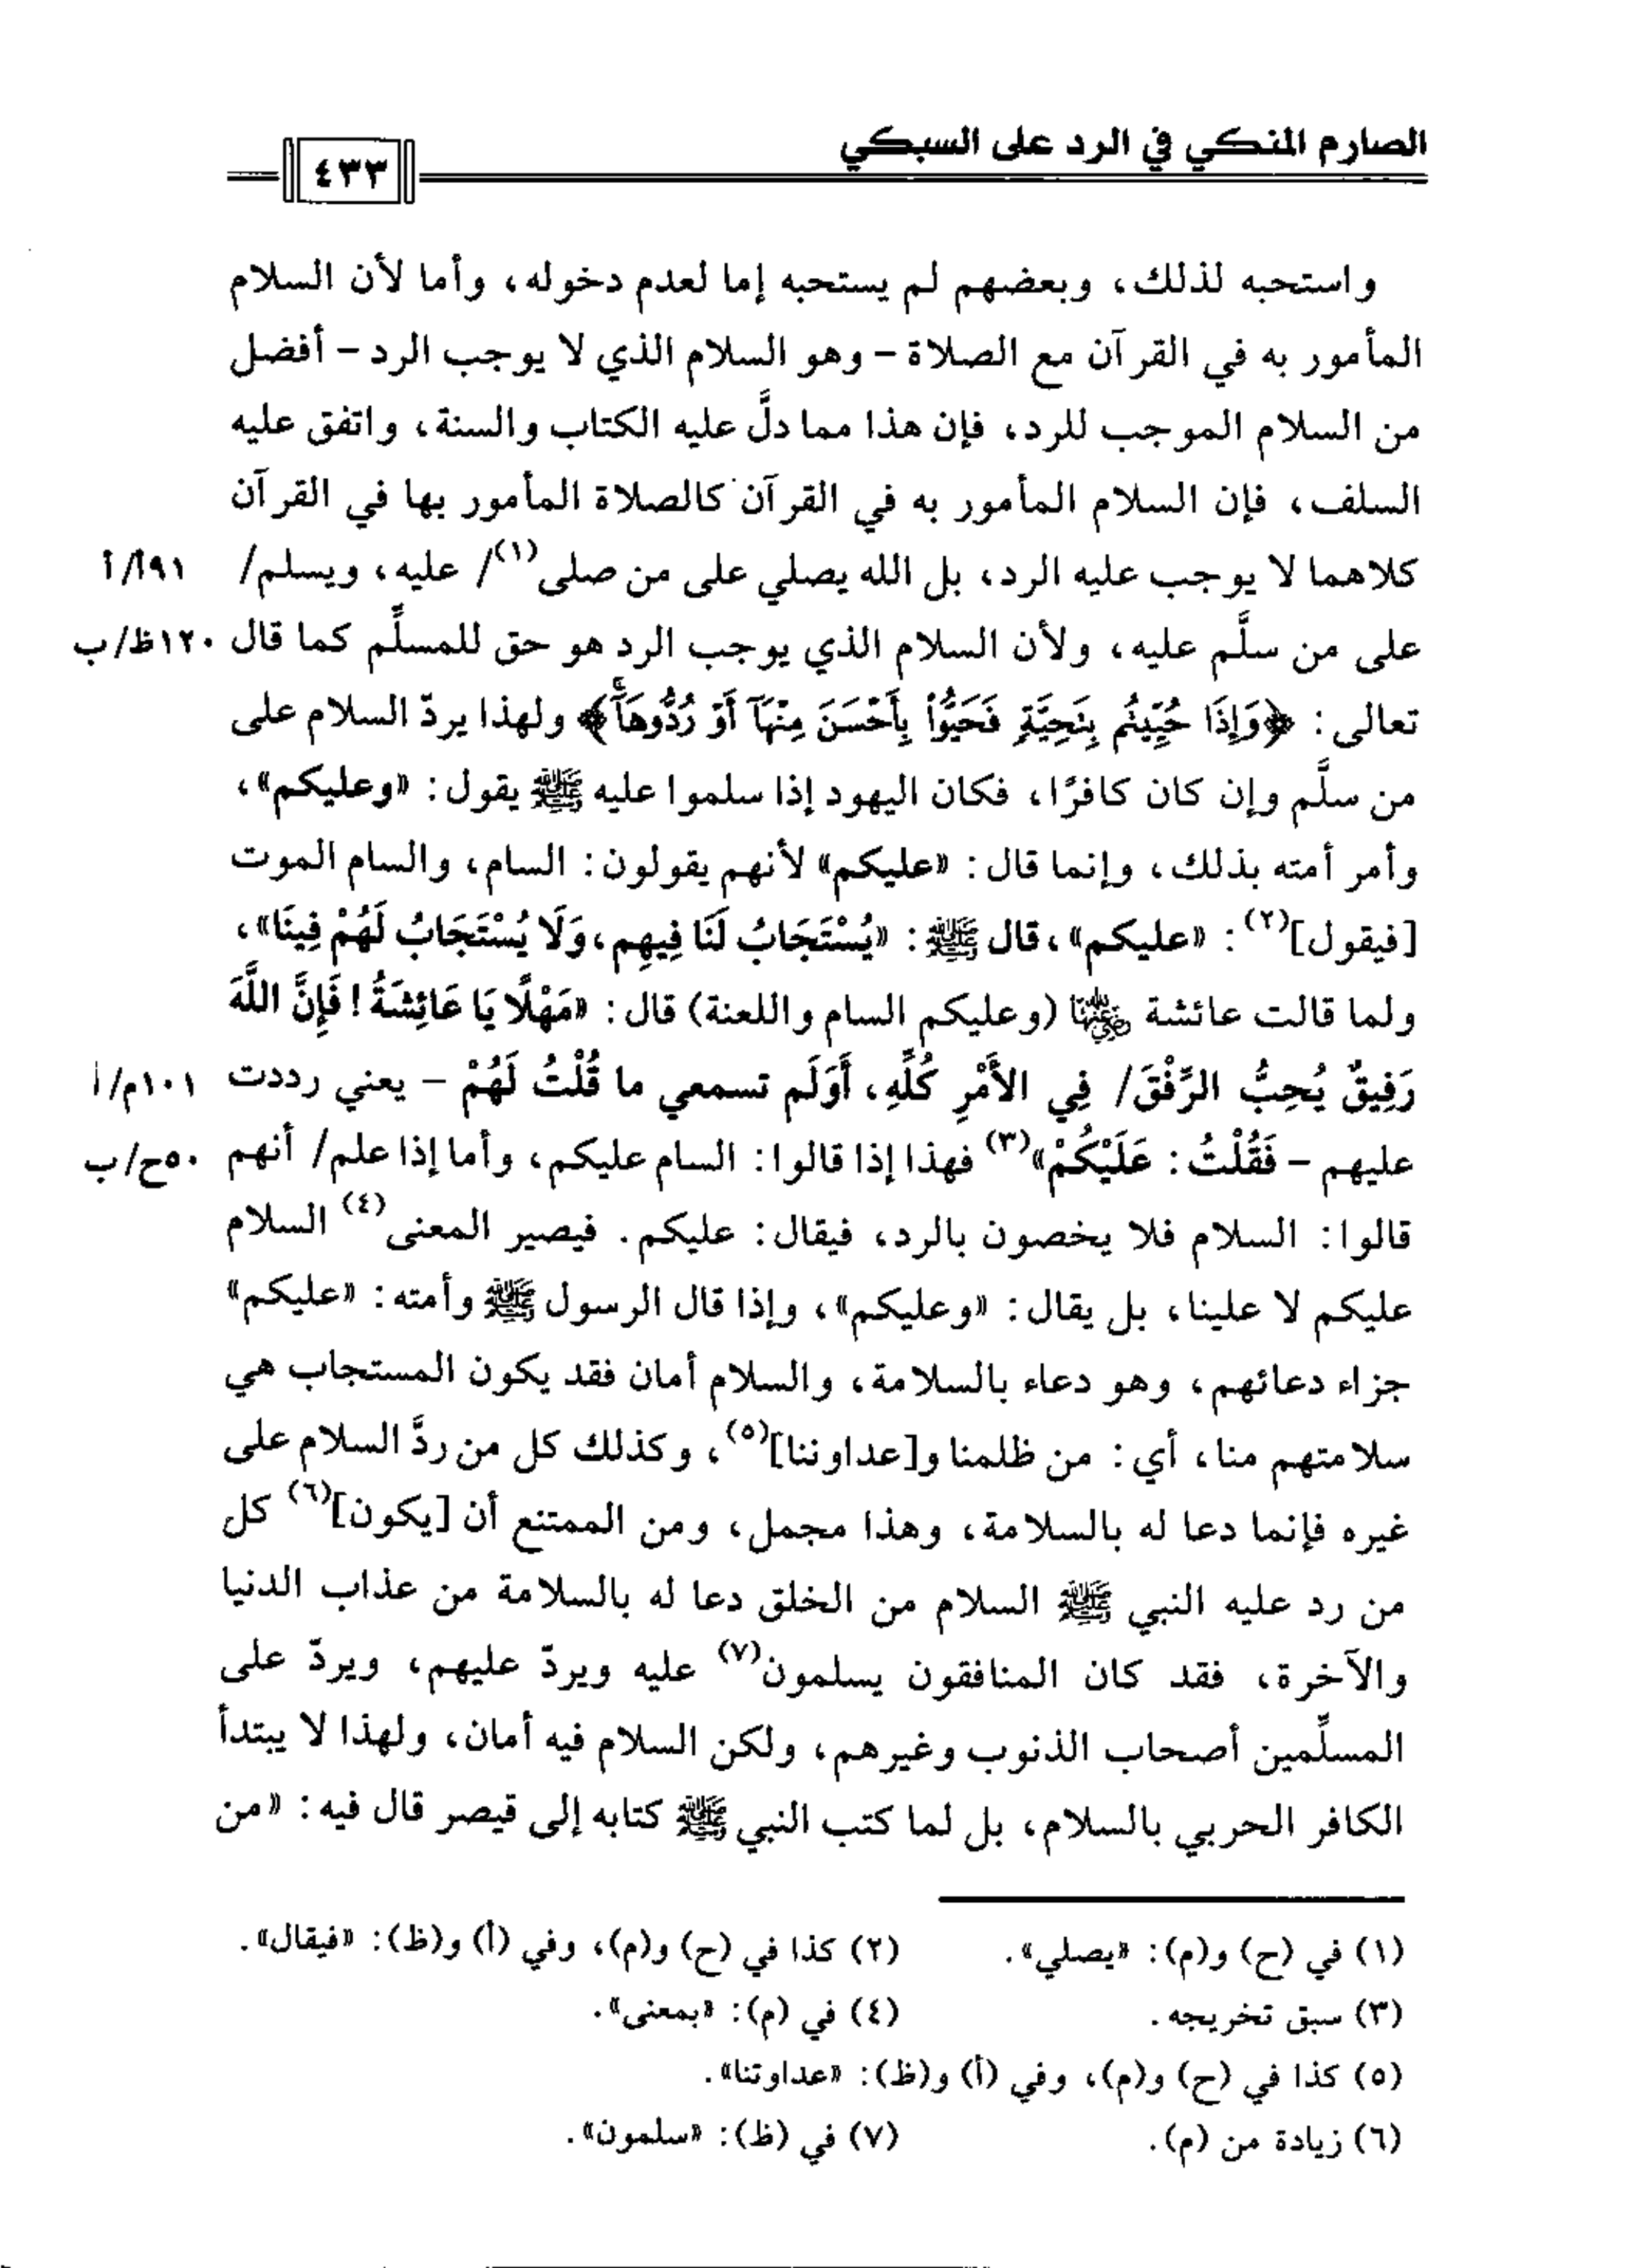 الصارم المنكي في الرد على السبكي
٤٣٣
واستحبه لذلك، وبعضهم لم يستحبه إما لعدم دخوله، وأما لأن السلام
المأمور به في القرآن مع الصلاة – وهو السلام الذي لا يوجب الرد – أفضل
من السلام الموجب للرد، فإن هذا مما دلَّ عليه الكتاب والسنة، واتفق عليه
السلف، فإن السلام المأمور به في القرآن كالصلاة المأمور بها في القرآن
كلاهما لا يوجب عليه الرد، بل الله يصلي على من صلى(١)/ عليه، ويسلم/ ٩١أ/أ
على من سلَّم عليه، ولأن السلام الذي يوجب الرد هو حق للمسلِّم كما قال ١٢٠ظ/ب
تعالى: ﴿وَإِذَا حُيِّيتُم بِتَحِيَّةٍ فَحَيُّوا۟ بِأَحْسَنَ مِنْهَآ أَوْ رُدُّوهَآۗ﴾ ولهذا يردّ السلام على
من سلَّم وإن كان كافرًا، فكان اليهود إذا سلموا عليه ﷺ يقول: «وعليكم»،
وأمر أمته بذلك، وإنما قال: «عليكم» لأنهم يقولون: السام، والسام الموت
[فيقول](٢): «عليكم»، قال ﷺ: «يُسْتَجَابُ لَنَا فِيهِم، وَلَا يُسْتَجَابُ لَهُمْ فِينَا»،
ولما قالت عائشة رضي الله عنها (وعليكم السام واللعنة) قال: «مَهْلًا يَا عَائِشَةُ! فَإِنَّ اللَّهَ
رَفِيقٌ يُحِبُّ الرِّفْقَ/ فِي الأَمْرِ كُلِّهِ، أَوَلَم تسمعي ما قُلْتُ لَهُمْ – يعني رددت ١٠١م/أ
عليهم – فَقُلْتُ: عَلَيْكُمْ»(٣) فهذا إذا قالوا: السام عليكم، وأما إذا علم/ أنهم ٥٠ح/ب
قالوا: السلام فلا يخصون بالرد، فيقال: عليكم. فيصير المعنى(٤) السلام
عليكم لا علينا، بل يقال: «وعليكم»، وإذا قال الرسول ﷺ وأمته: «عليكم»
جزاء دعائهم، وهو دعاء بالسلامة، والسلام أمان فقد يكون المستجاب هي
سلامتهم منا، أي: من ظلمنا و[عداوننا](٥)، وكذلك كل من ردَّ السلام على
غيره فإنما دعا له بالسلامة، وهذا مجمل، ومن الممتنع أن [يكون](٦) كل
من رد عليه النبي ﷺ السلام من الخلق دعا له بالسلامة من عذاب الدنيا
والآخرة، فقد كان المنافقون يسلمون(٧) عليه ويردّ عليهم، ويردّ على
المسلِّمين أصحاب الذنوب وغيرهم، ولكن السلام فيه أمان، ولهذا لا يبتدأ
الكافر الحربي بالسلام، بل لما كتب النبي ﷺ كتابه إلى قيصر قال فيه: «من
(١) في (ح) و(م): «يصلي». (٢) كذا في (ح) و(م)، وفي (أ) و(ظ): «فيقال».
(٣) سبق تخريجه. (٤) في (م): «بمعنى».
(٥) كذا في (ح) و(م)، وفي (أ) و(ظ): «عداوتنا».
(٦) زيادة من (م). (٧) في (ظ): «سلمون».